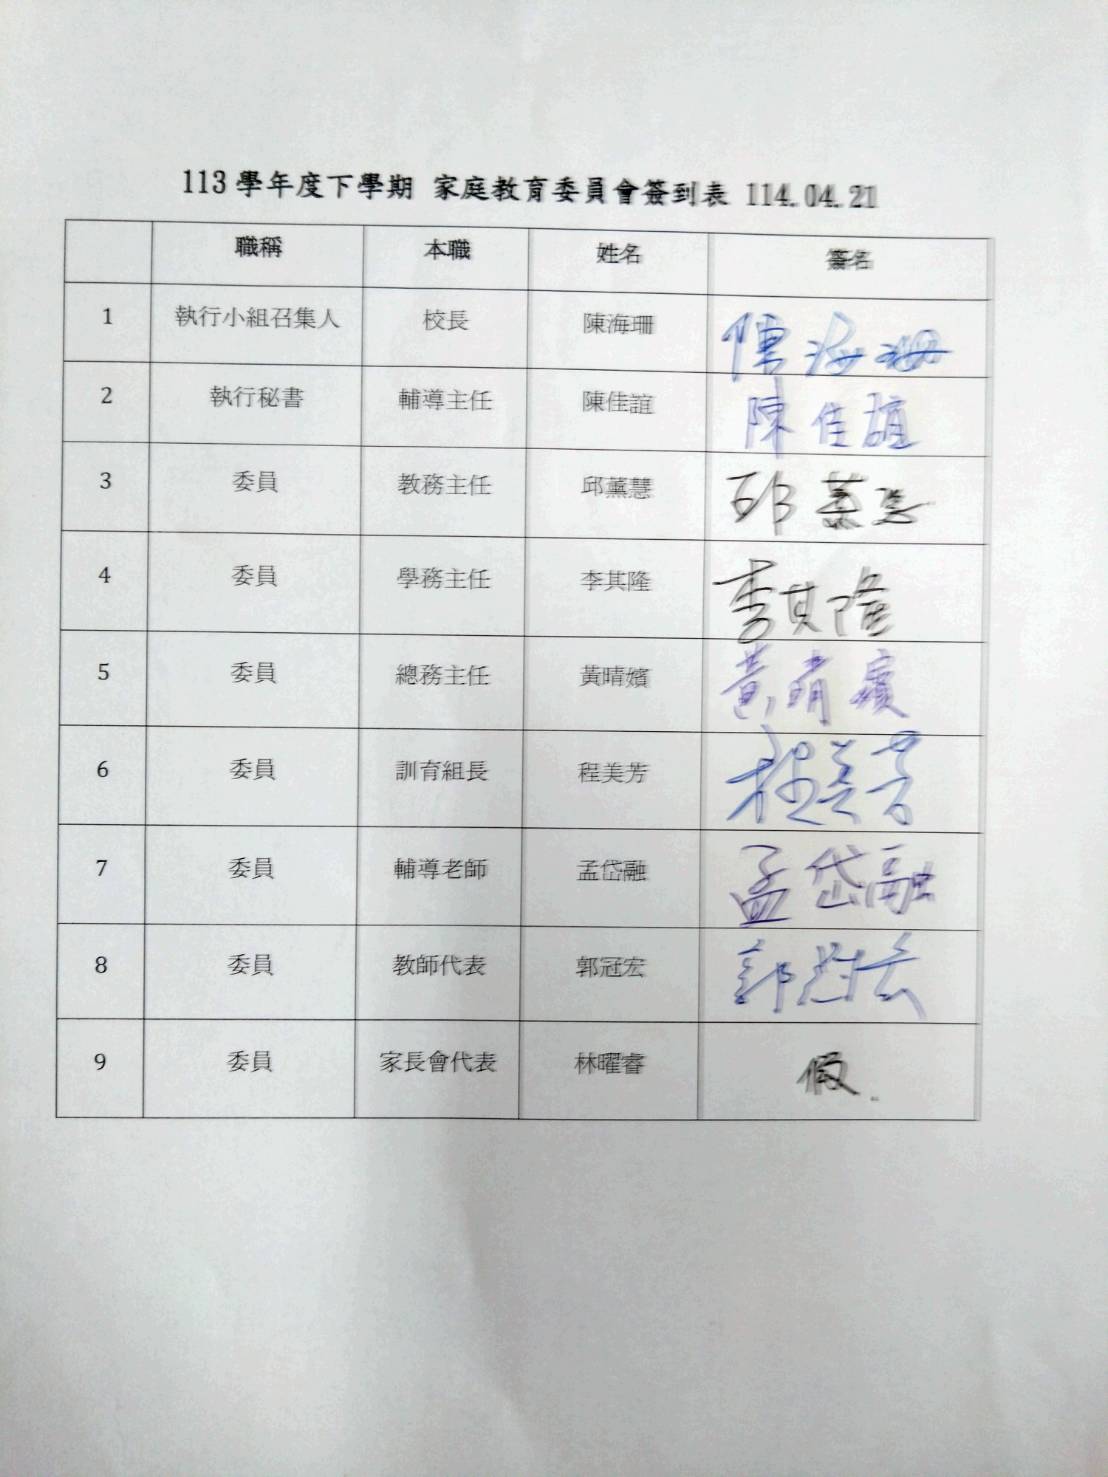 113學年度下學期 家庭教育委員會簽到表 114.04.21
職稱 本職 姓名 簽名
1 執行小組召集人 校長 陳海珊 陳海珊
2 執行秘書 輔導主任 陳佳誼 陳佳誼
3 委員 教務主任 邱薰慧 邱薰慧
4 委員 學務主任 李其隆 李其隆
5 委員 總務主任 黃晴嬪 黃晴嬪
6 委員 訓育組長 程美芳 程美芳
7 委員 輔導老師 孟岱融 孟岱融
8 委員 教師代表 郭冠宏 郭冠宏
9 委員 家長會代表 林曜睿 假